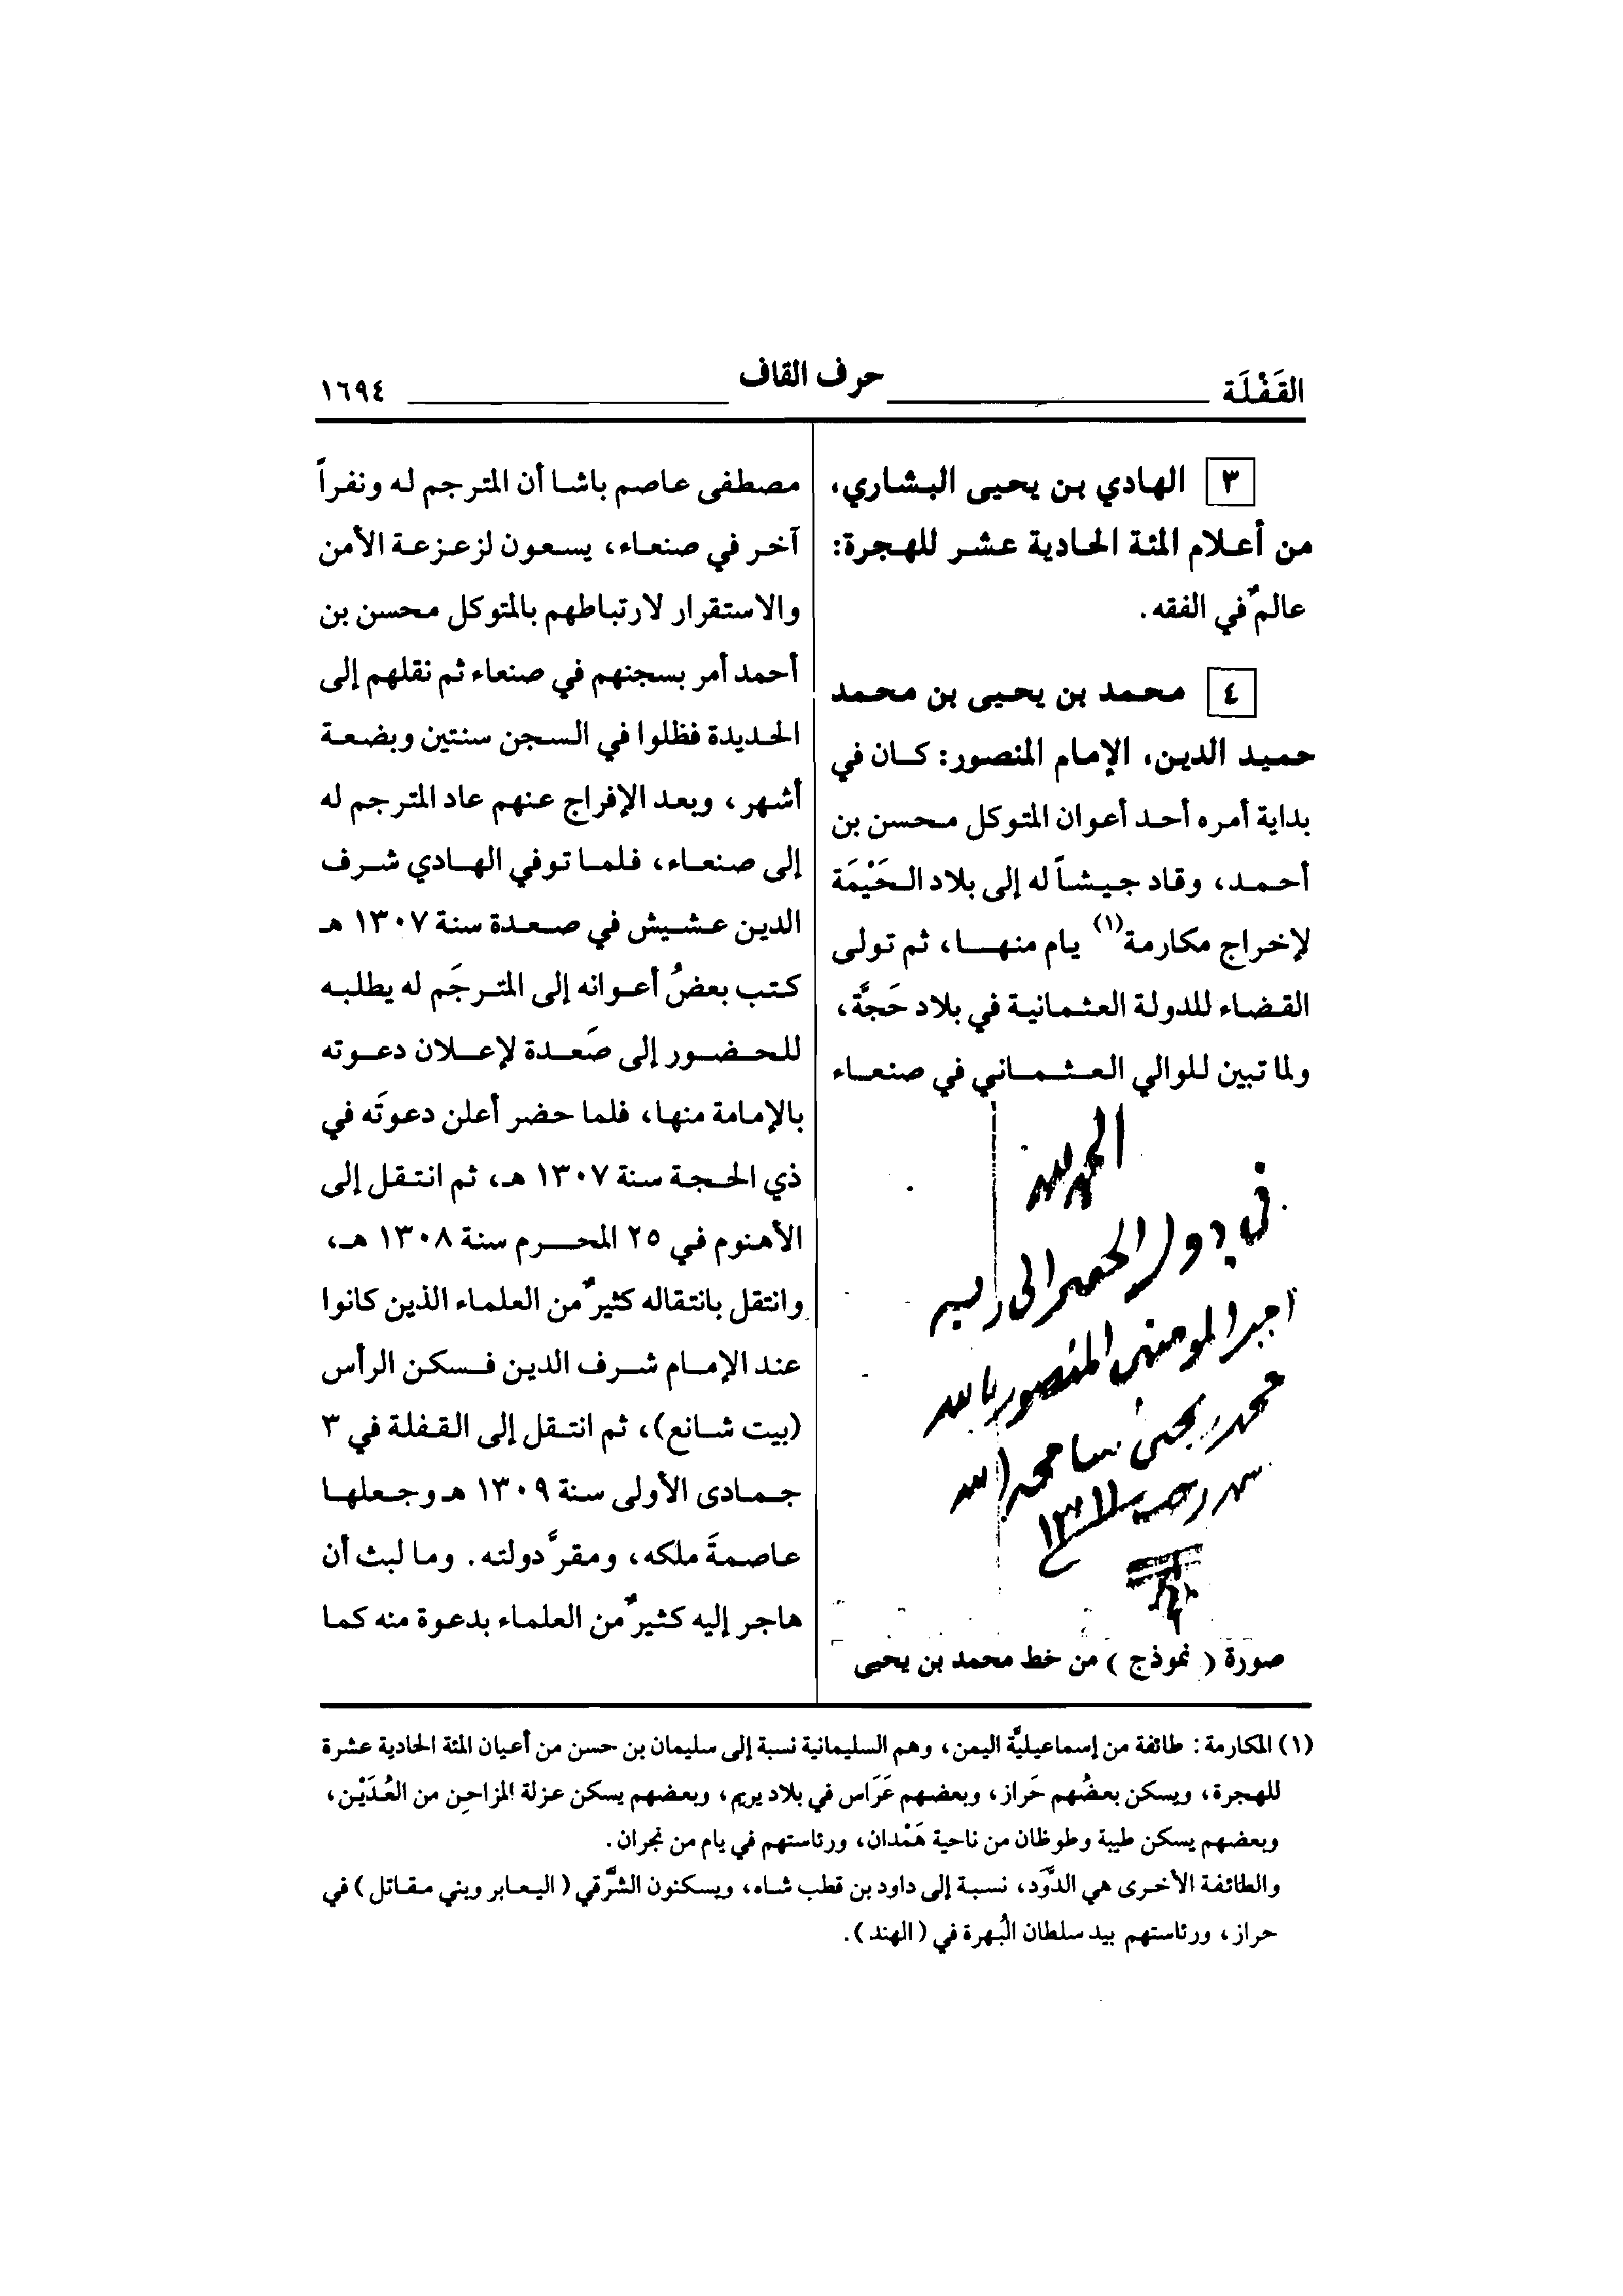 القَفْلَة
حرف القاف
١٦٩٤
٣ الهادي بن يحيى البشاري،
من أعلام المئة الحادية عشر للهجرة:
عالمٌ في الفقه.
٤ محمد بن يحيى بن محمد
حميد الدين، الإمام المنصور: كان في
بداية أمره أحد أعوان المتوكل محسن بن
أحمد، وقاد جيشاً له إلى بلاد الحَيْمَة
لإخراج مكارمة(١) يام منها، ثم تولى
القضاء للدولة العثمانية في بلاد حَجَّة،
ولما تبين للوالي العثماني في صنعاء
الحمد لله
أمير المؤمنين المنصور بالله
محمد بن يحيى سامحه الله
صورة ( نموذج ) من خط محمد بن يحيى
مصطفى عاصم باشا أن المترجم له ونفراً
آخر في صنعاء، يسعون لزعزعة الأمن
والاستقرار لارتباطهم بالمتوكل محسن بن
أحمد أمر بسجنهم في صنعاء ثم نقلهم إلى
الحديدة فظلوا في السجن سنتين وبضعة
أشهر، وبعد الإفراج عنهم عاد المترجم له
إلى صنعاء، فلما توفي الهادي شرف
الدين عشيش في صعدة سنة ١٣٠٧ هـ
كتب بعضُ أعوانه إلى المترجَم له يطلبه
للحضور إلى صَعدة لإعلان دعوته
بالإمامة منها، فلما حضر أعلن دعوتَه في
ذي الحجة سنة ١٣٠٧ هـ، ثم انتقل إلى
الأهنوم في ٢٥ المحرم سنة ١٣٠٨ هـ،
وانتقل بانتقاله كثيرٌ من العلماء الذين كانوا
عند الإمام شرف الدين فسكن الرأس
(بيت شانع)، ثم انتقل إلى القفلة في ٣
جمادى الأولى سنة ١٣٠٩ هـ وجعلها
عاصمةَ ملكه، ومقرَّ دولته. وما لبث أن
هاجر إليه كثيرٌ من العلماء بدعوة منه كما
(١) المكارمة: طائفة من إسماعيليَّة اليمن، وهم السليمانية نسبة إلى سليمان بن حسن من أعيان المئة الحادية عشرة
للهجرة، ويسكن بعضُهم حَراز، وبعضهم عَرَاس في بلاد يريم، وبعضهم يسكن عزلة المزاحِن من العُدَيْن،
وبعضهم يسكن طيبة وطوظان من ناحية هَمْدان، ورئاستهم في يام من نجران.
والطائفة الأخرى هي الدَّوَد، نسبة إلى داود بن قطب شاه، ويسكنون الشَّرقي (اليعابر وبني مقاتل) في
حراز، ورئاستهم بيد سلطان البُهرة في (الهند).